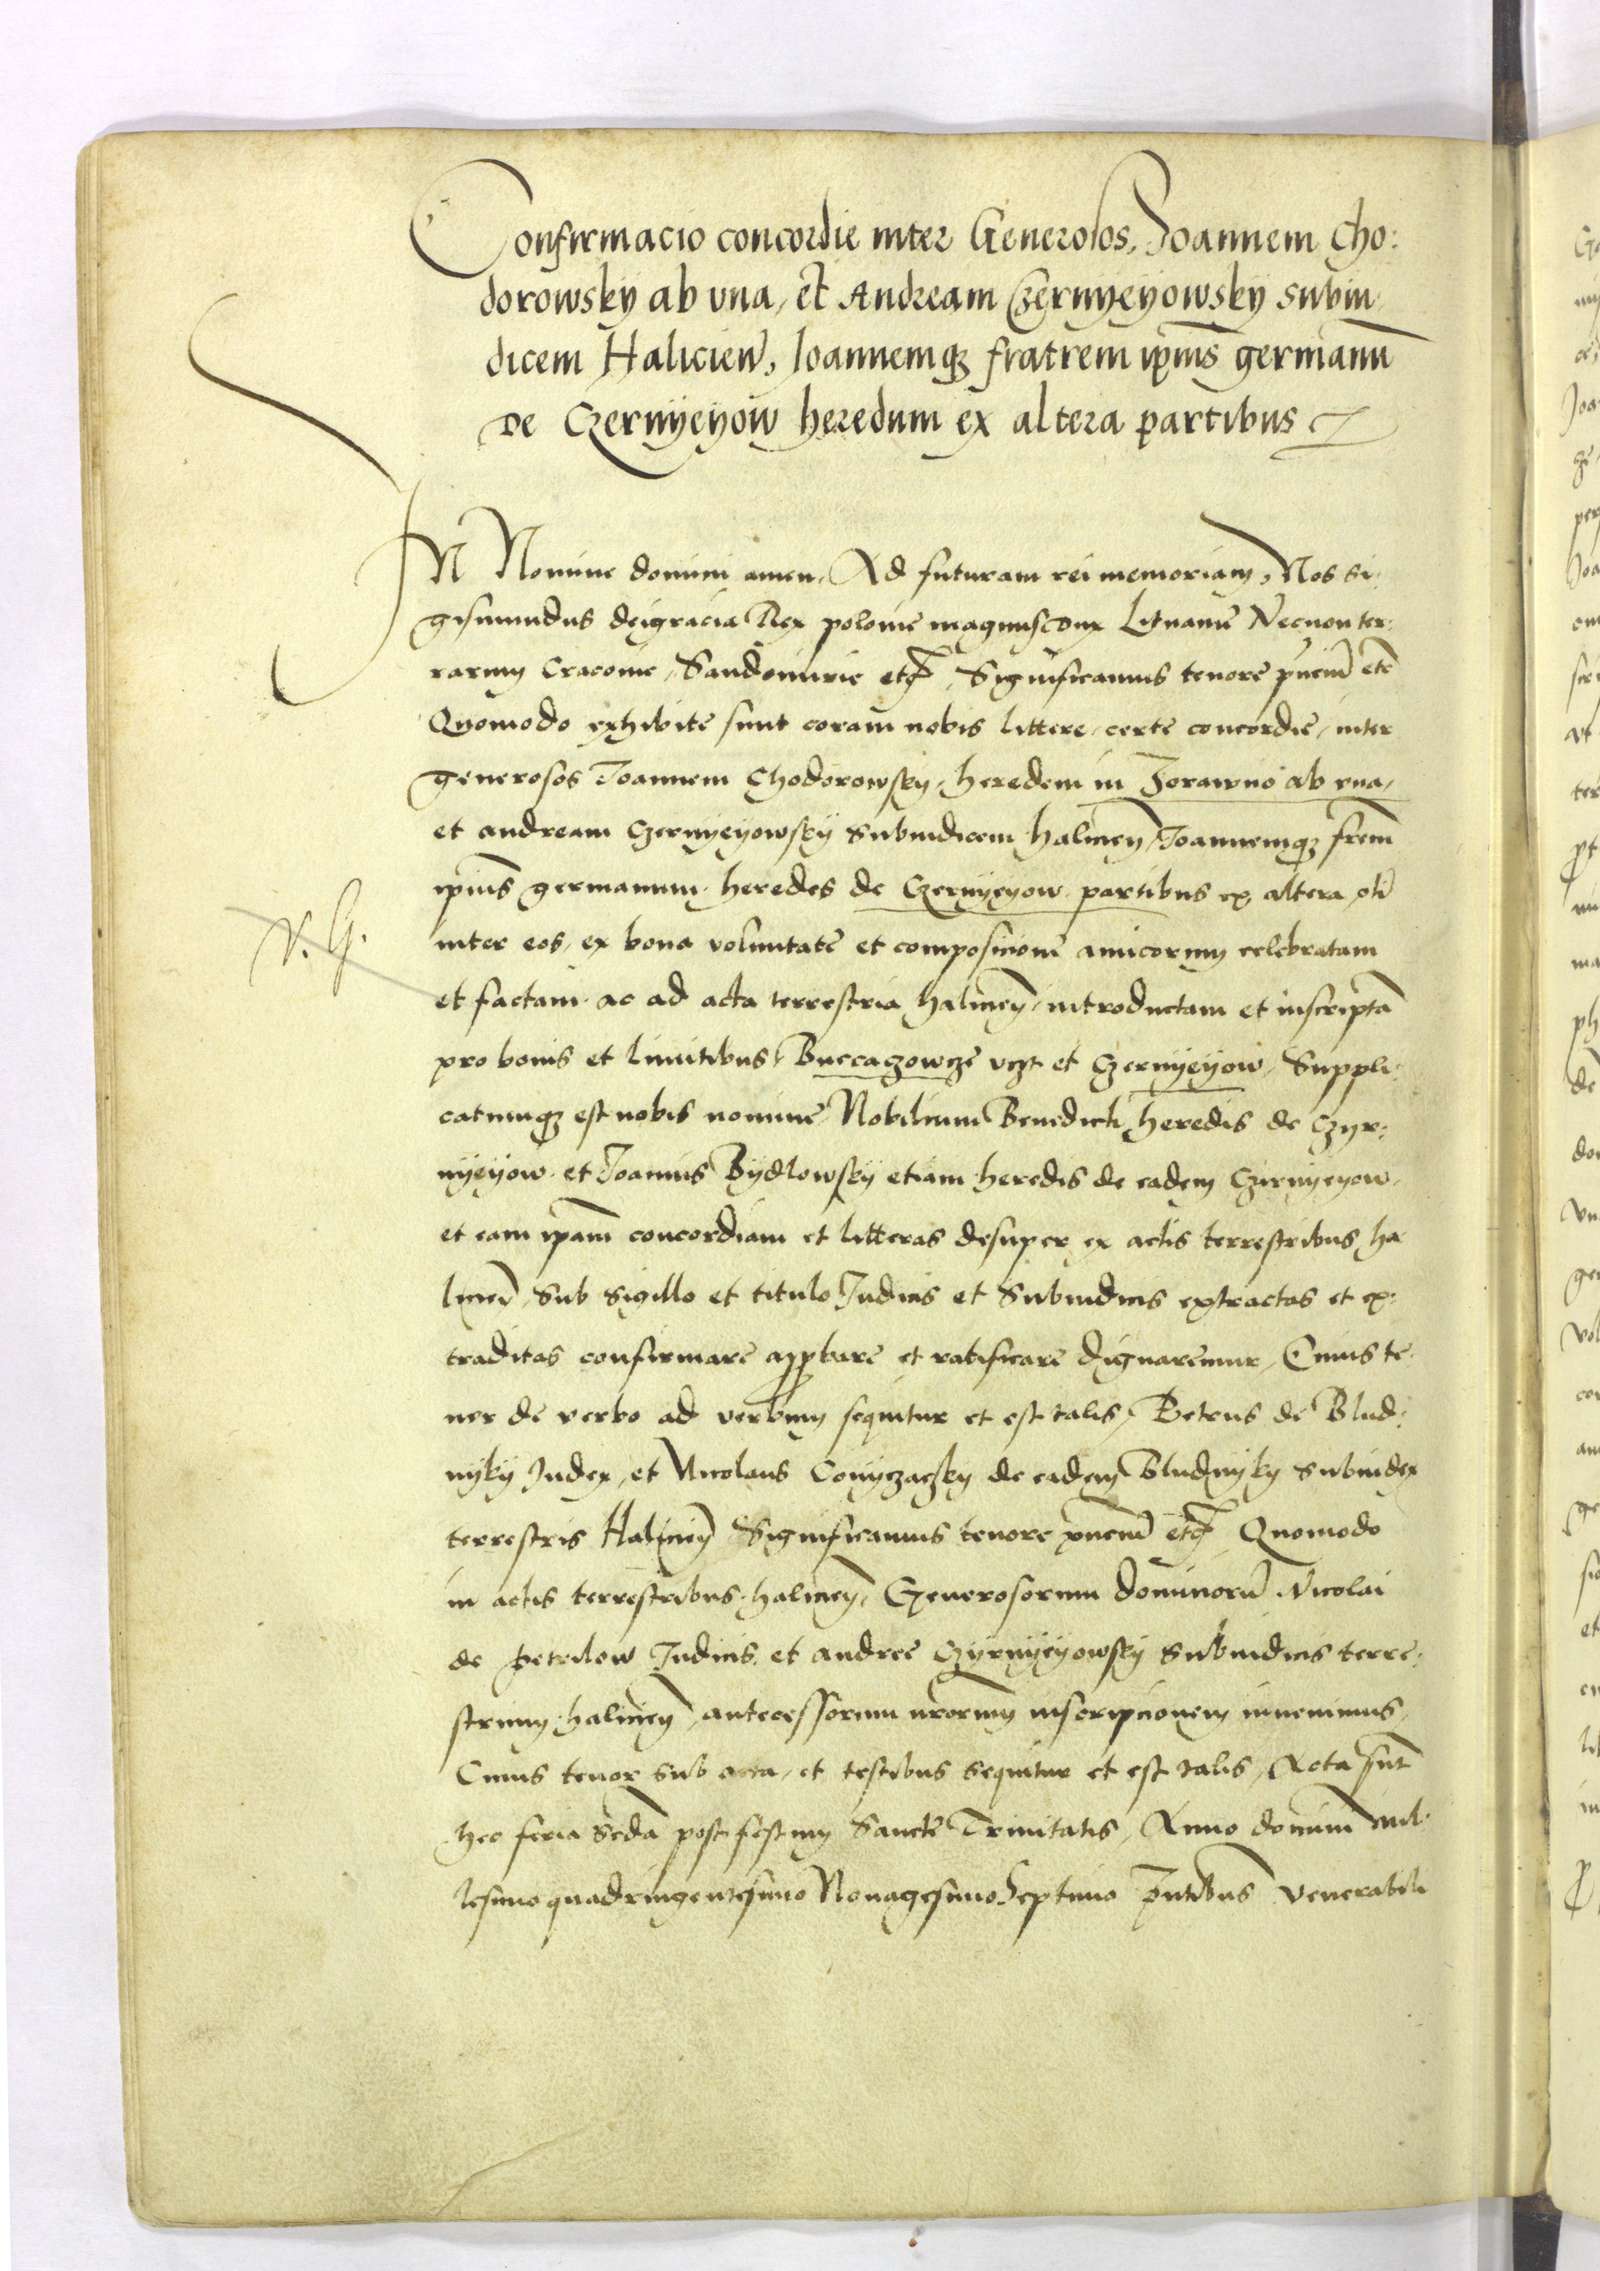 Confirmacio concordie inter Generosos, Joannem Cho:
dorowskÿ ab vna, et Andream Czernÿeÿowskÿ subiu
dicem Halicien̄, Joannemqʒ fratrem ip̄ius germanū
De Czernÿeÿow heredum ex altera partibus
IN Nomine domini amen, Ad futuram rei memoriam, Nos Si:
gismundus dei gracia Rex polonie magnus dux Lituanie Necnon ter:
rarum Cracouie, Sandomirie etc, Significamus tenore pn̄ciū etc̄
Quomodo exhibite sunt coram nobis littere, certe concordie, inter
generosos Joannem Chodorowskÿ, heredem in Zorawno ab vna,
et andream Czernÿeÿowskÿ Subiudicem haliciēn, Joannemqʒ frēm
ip̄ius germanum, heredes de Czernÿeÿow partibus ex altera
inter eos, ex bona voluntate et composicione amicorum celebratam
V. G.
et factam, ac ad acta terrestria haliciēn, introductam et inscriptā
pro bonis et limitibus, Buccaczowcze vʒt et Czernÿeÿow, Suppli:
catumqʒ est nobis nomine Nobilium Benedicti heredis de Czyr:
nÿeÿow, et Joannis Bÿdlowskÿ etiam heredis de eadem Czirnÿeÿow,
et eam ipām concordiam et litteras desuper ex actis terrestribus ha
liciēn, sub sigillo et titulo Judicis et Subiudicis extractas et ex:
traditas confirmare approbare et ratificare dignaremur, Cuius te:
nor de verbo ad verbum sequitur et est talis, Petrus de Blud:
nÿkÿ Judex, et Nicolaus Conyczaczkÿ de eadem Bludnÿkÿ Subiudex
terrestris Haliciēn Significamus tenore pn̄ciū etc Quomodo
in actis terrestribus haliciēn, Generosorum dominorū Nicolai
de petrilow Judicis, et andree Czÿrnÿeÿowskÿ Subiudicis terre:
strium haliciēn, antecessorum nr̄orum inscripcionem inuenimus,
Cuius tenor sub acta, et testibus sequitur et est talis, Acta sunt
hec feria Secd̄a post festum Sancte Trinitatis, Anno domini Mil:
lesimo quadringentesimo Nonagesimo Septimo Pn̄tibus venerabili